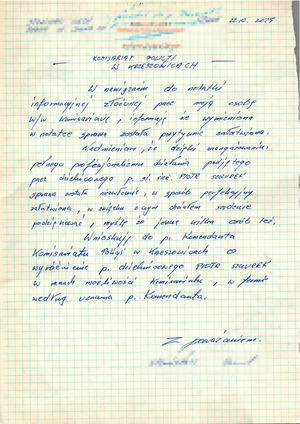 22.10.2025
KOMISARIAT POLICJI
W KRZESZOWICACH
W nawiązaniu do notatki
informacyjnej złożonej przez moją osobę
w/w komisariacie, informuję że wymieniona
w notatce sprawa została pozytywnie załatwiona.
Nadmieniam, że dzięki zaangażowaniu
pełnego profesjonalizmu działania podjętego
przez dzielnicowego p. st. PIOTR
sprawa została niezwłocznie, w sposób perfekcyjny
załatwiona, w związku z czym chciałem serdecznie
podziękować, myślę że jeszcze kilka osób też.
Wnioskuję do p. Komendanta
Komisariatu Policji w Krzeszowicach o
wyróżnienie p. dzielnicowego PIOTR
w ramach możliwości komisariatu, w formie
według uznania p. Komendanta.
Z poważaniem.